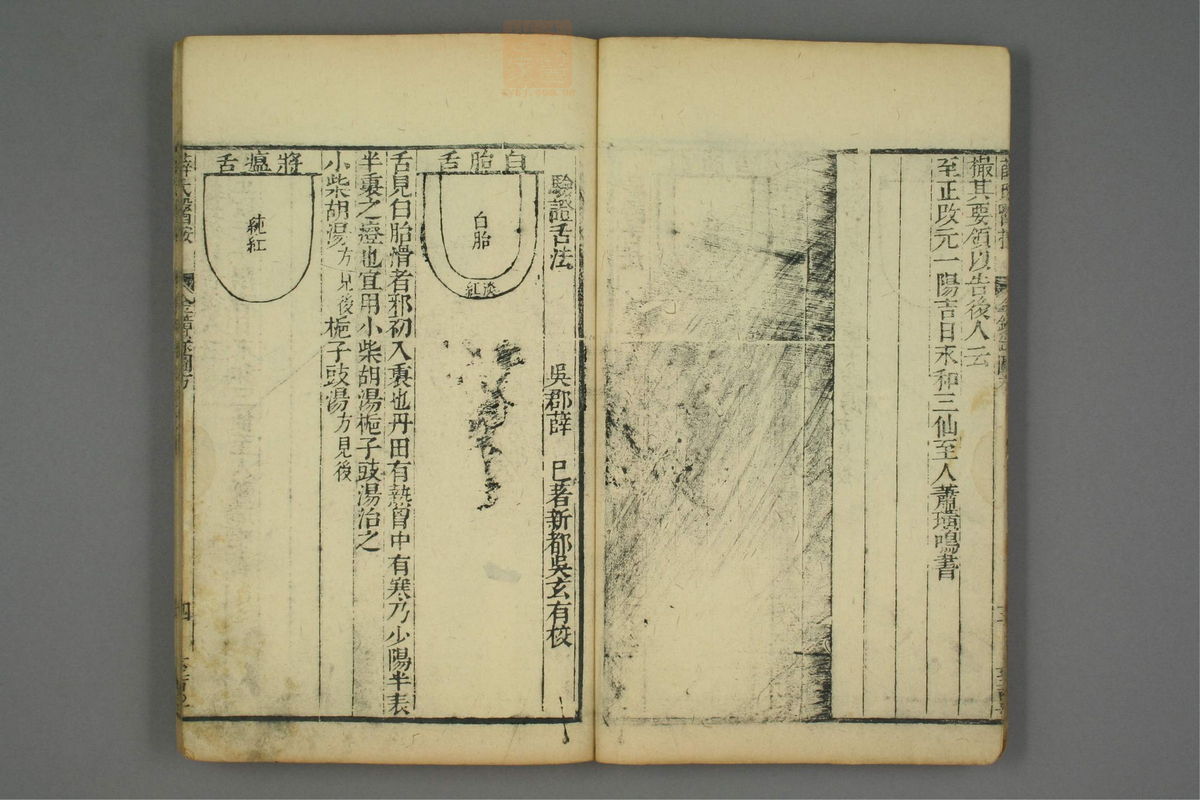 撮其要領以告後人云
至正改元一陽吉日承和三仙至人蕭璜鳴書
驗證舌法
吳郡薛　巳著新都吳玄有校
白胎舌
白胎
淡紅
舌見白胎滑者邪初入裏也丹田有熱曾中有寒乃少陽半表
半裏之證也宜用小柴胡湯梔子豉湯治之
小柴胡湯方見後梔子豉湯方見後
將瘟舌
純紅
四